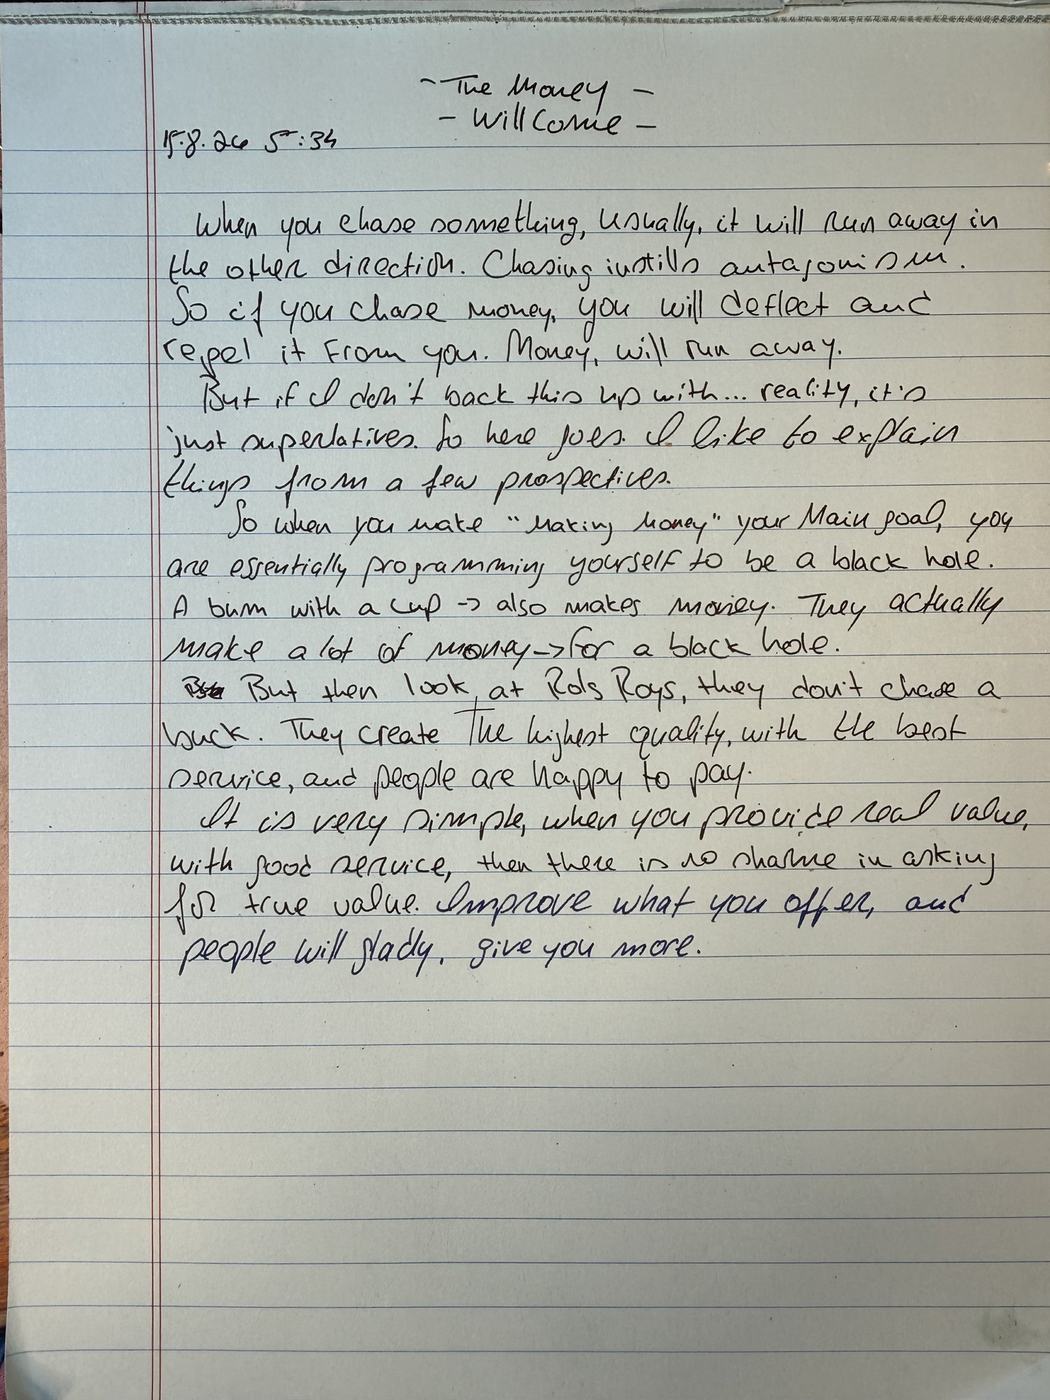 - The Money -
- Will Come -
15.8.26 5:34
When you chase something, usually, it will run away in
the other direction. Chasing instills antagonism.
So if you chase money, you will deflect and
repel it From you. Money, will run away.
But if I don't back this up with... reality, it's
just superlatives. So here goes. I like to explain
things from a few prospectives.
So when you make "Making Money" your Main goal, you
are essentially programming yourself to be a black hole.
A bum with a cup -> also makes money. They actually
make a lot of money -> for a black hole.
But then look, at Rols Roys, they don't chase a
buck. They create The highest quality, with the best
service, and people are happy to pay.
It is very simple, when you provide real value,
with good service, then there is no shame in asking
for true value. Improve what you offer, and
people will glady, give you more.